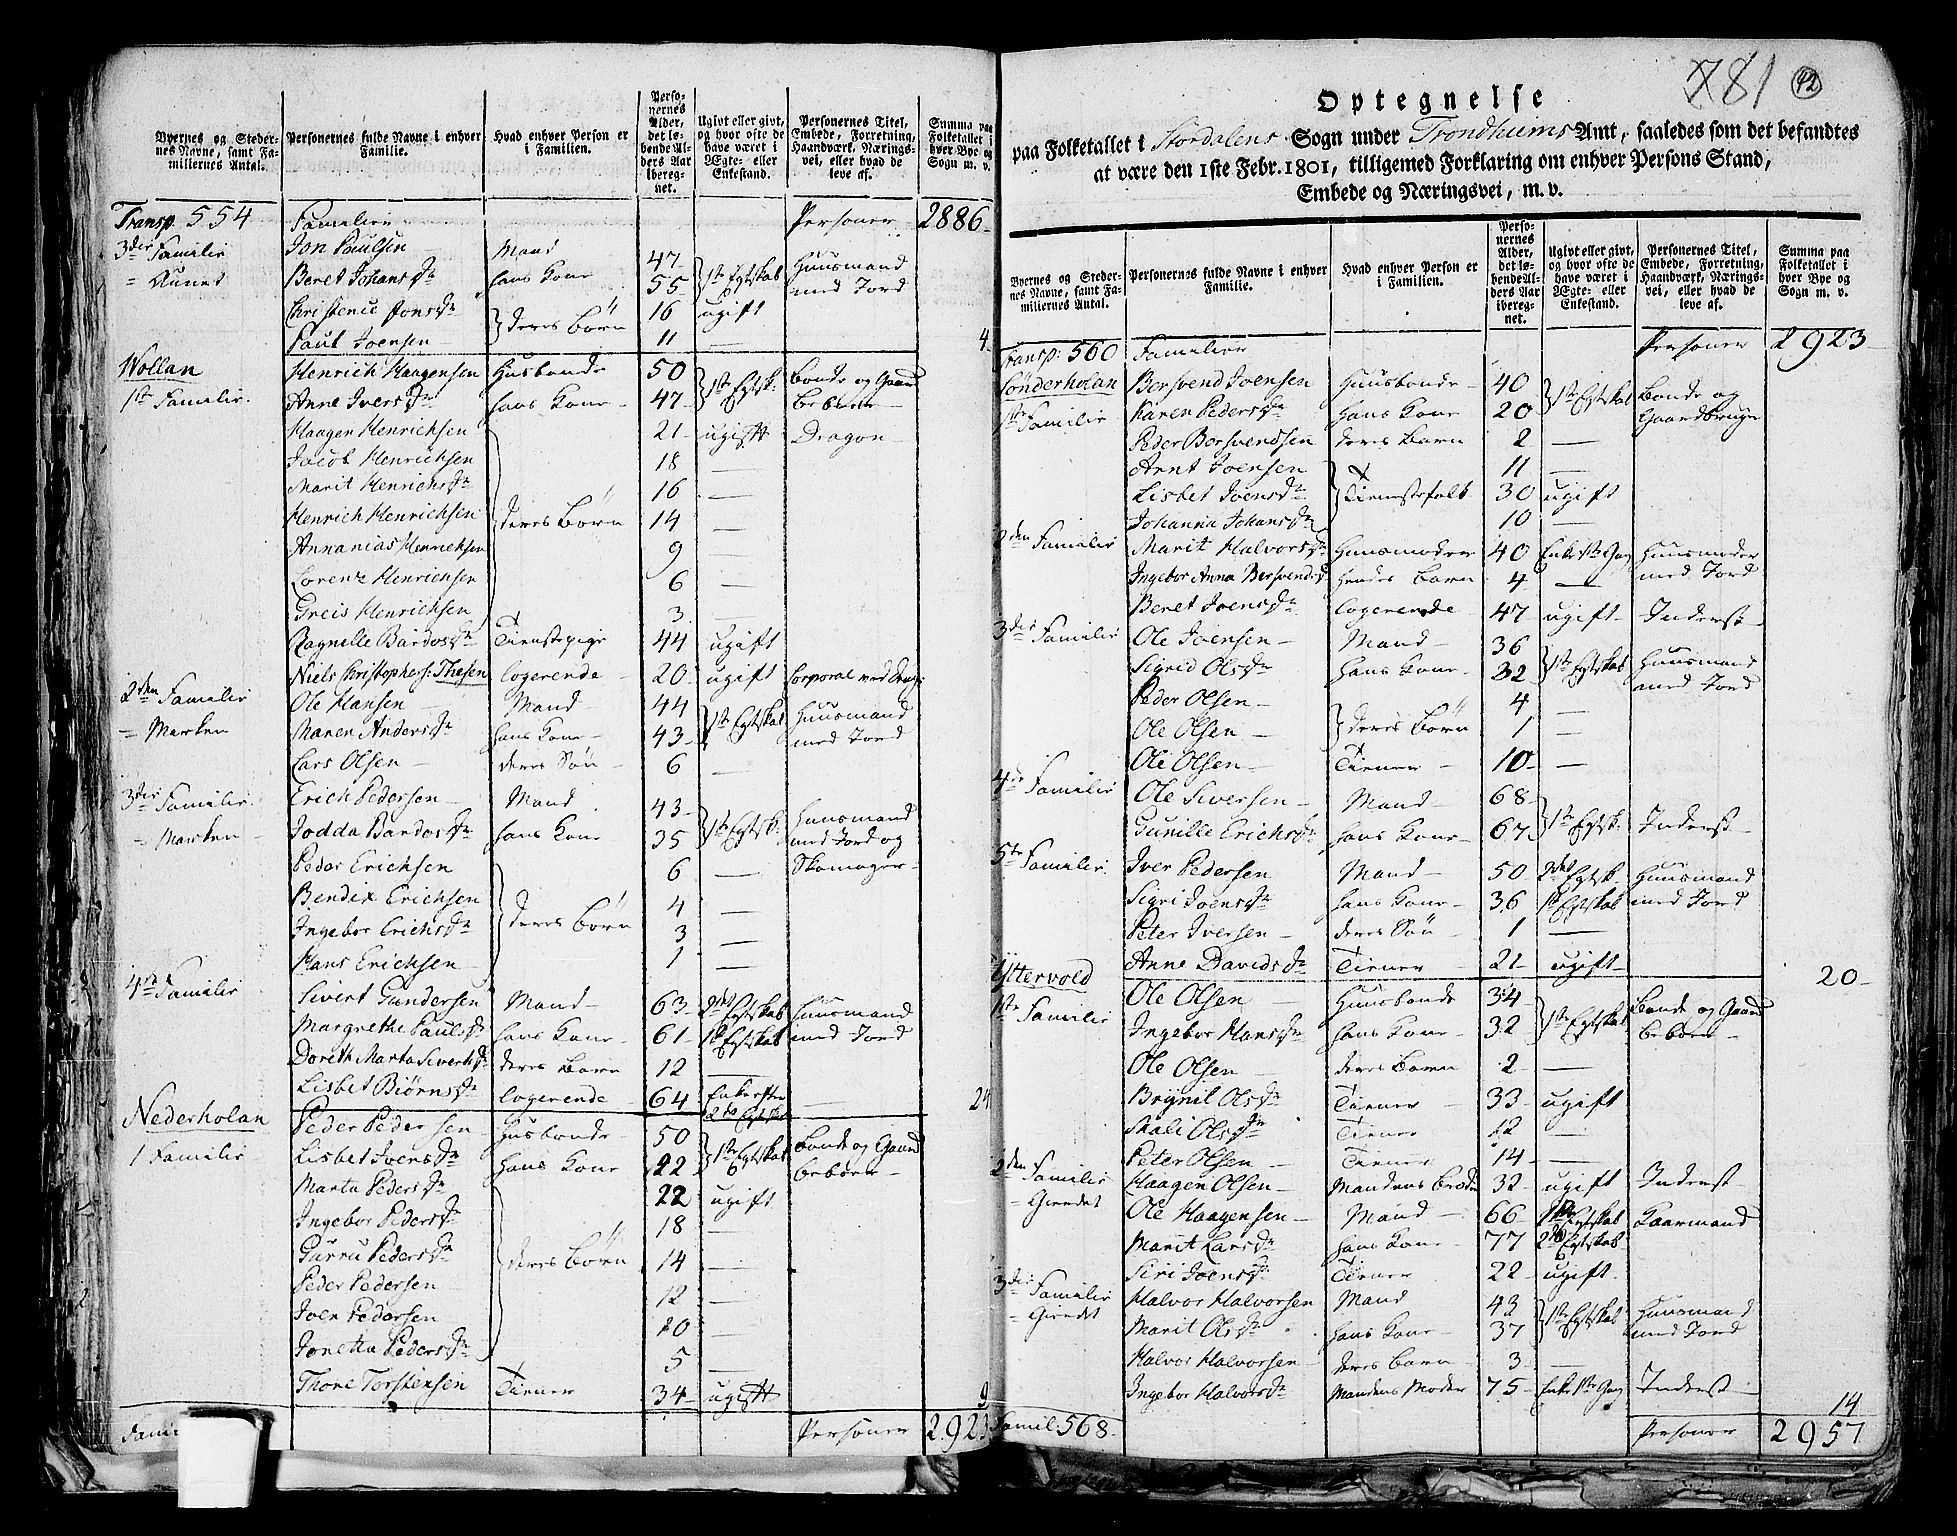 Byernes og Stedernes Navne, samt Familiernes Antal. | Personernes fulde Navne i enhver Familie. | Hvad enhver Person er i Familien. | Personernes Alder, det løbende Alders Aar iberegnet. | Ugivt eller givt, og hvor ofte de have været i Ægte- eller Enkestand. | Personernes Titel, Embede, Forretning, Haandværk, Næringsvei, eller hvad de leve af. | Summa paa Folketallet i hver Bye og Sogn m. v.
Transp. 554 Familier Personer 2886
3die Familie Jon Paulsen Mand 47 1ste Egtskab Huusmand
= Aunet Beret Johansdr hans Kone 55 med Jord
Christence Jonsdr deres Börn 16 ugift
Paul Joensen 11 — 4
Wollan Henrich Haagensen Husbonde 50 1ste Egtsk: Bonde og Gaard
1ste Familie. Anne Iversdr hans Kone 47 Beboer
Haagen Henrichsen 21 ugift Dragon
Jacob Henrichsen 18 —
Marit Henrichsdr 16 —
Henrich Henrichsen deres Börn 14 —
Annanias Henrichsen 9 —
Lorenz Henrichsen 6 —
Greis Henrichsen 3 —
Ragnille Bardosdr Tienstepige 44 ugift
Niels Christophers: Thesen Logerende 20 ugift Corporal ved
2den Familie Ole Hansen Mand 44 1ste Egtskab Huusmand
= Marken Maren Andersdr hans Kone 43 med Jord
Lars Olsen deres Sön 6 —
3die Familie. Erich Pedersen Mand 43 1ste Egtsk: Huusmand
= Marken Jodda Bardosdr hans Kone 35 med Jord og
Peder Erichsen 6 — Skomager
Bendix Erichsen deres Börn 4 —
Ingebor Erichsdr 3 —
Hans Erichsen 1 —
4de Familie Sivert Gundersen Mand 63 2det Egtskab Huusmand
Margrethe Paulsdr hans Kone 61 1ste Egtskab med Jord
Dorith Marta Sivertsdr deres Barn 12 —
Lisbet Biørnsdr Logerende 64 Enke efter 2det Egtskab — 24
Nederholan Peder Pedersen Husbonde 50 1ste Egtskab Bonde og Gaard
1 Familie Lisbet Joensdr hans Kone 42 beboer
Marta Pedersdr 22 ugift
Ingebor Pedersdr 18 —
Gurru Pedersdr deres Börn 14 —
Peder Pedersen 12 —
Joen Pedersen 10 —
Jonetta Pedersdr 5 —
Thore Torstensen Tiener 34 ugift 9
Personer 2923
781 42
Optegnelse
paa Folketallet i Stordalens Sogn under Trondhiems Amt, saaledes som det befandtes
at være den 1ste Febr. 1801, tilligemed Forklaring om enhver Persons Stand,
Embede og Næringsvei, m. v.
Byernes og Stedernes Navne, samt Familiernes Antal. | Personernes fulde Navne i enhver Familie. | Hvad enhver Person er i Familien. | Personernes Alder, det løbende Alders Aar iberegnet. | Ugivt eller givt, og hvor ofte de have været i Ægte- eller Enkestand. | Personernes Titel, Embede, Forretning, Haandværk, Næringsvei, eller hvad de leve af. | Summa paa Folketallet i hver Bye og Sogn m. v.
Transp: 560 Familier Personer 2923
Sönderholan Bersvend Joensen Huusbonde 40 1ste Egtskab Bonde og
1ste Familie Karen Pedersdr hans Kone 20 Gaardbruger
Peder Bersvendsen deres Barn 2 —
Arnt Joensen 11 —
Lisbet Joensdr Tienestefolk 30 ugift
Johanna Johansdr 10 —
2den Familie Marit Halvorsdr Huusmoder 40 Enke 1ste Gang Huusmoder
Ingebor Anna Bersvendsd hendes Barn 4 — med Jord
Beret Joensdr Logerende 47 ugift Inderst
3die Familie Ole Joensen Mand 36 1ste Egtskab Huusmand
Sigrid Olsdr hans Kone 32 med Jord
Peder Olsen 4 —
Ole Olsen deres Börn 1 —
Ole Olsen Tiener 10 —
4de Familie Ole Siversen Mand 68 1ste Egtsk: Inderst
Gunille Erichsdr hans Kone 67
5te Familie. Iver Pedersen Mand 50 2det Egtsk Huusmand
Sigri Joensdr hans Kone 36 1ste Egtskab med Jord
Peter Iversen deres Sön 1 —
Anne Davidsdr Tiener 21 ugift 20
Yttervold Ole Olsen Huusbonde 34 1ste Egtskab Bonde og Gaard
1ste Familie Ingebor Hansdr hans Kone 32 beboer
Ole Olsen deres Barn 2 —
Brynil Olsdr Tiener 33 ugift
Mali Olsdr Tiener 12 —
Peter Olsen Tiener 14 —
2den Familie Haagen Olsen Mandens Broder 32 ugift Inderst
= Gierdet Ole Haagensen Mand 66 1ste Egtskab Kaarmand
Marit Larsdr hans Kone 77 2det Egtskab
Siri Joensdr Tiener 22 ugift
3die Familie Halvor Halvorsen Mand 43 1ste Egtskab Huusmand
= Gierdet Marit Olsdr hans Kone 37 med Jord
Halvor Halvorsen deres Barn 3 —
Ingebor Halvorsdr Mandens Moder 75 Enke 1ste Gang Inderst 14
Famil: 568. Personer 2957